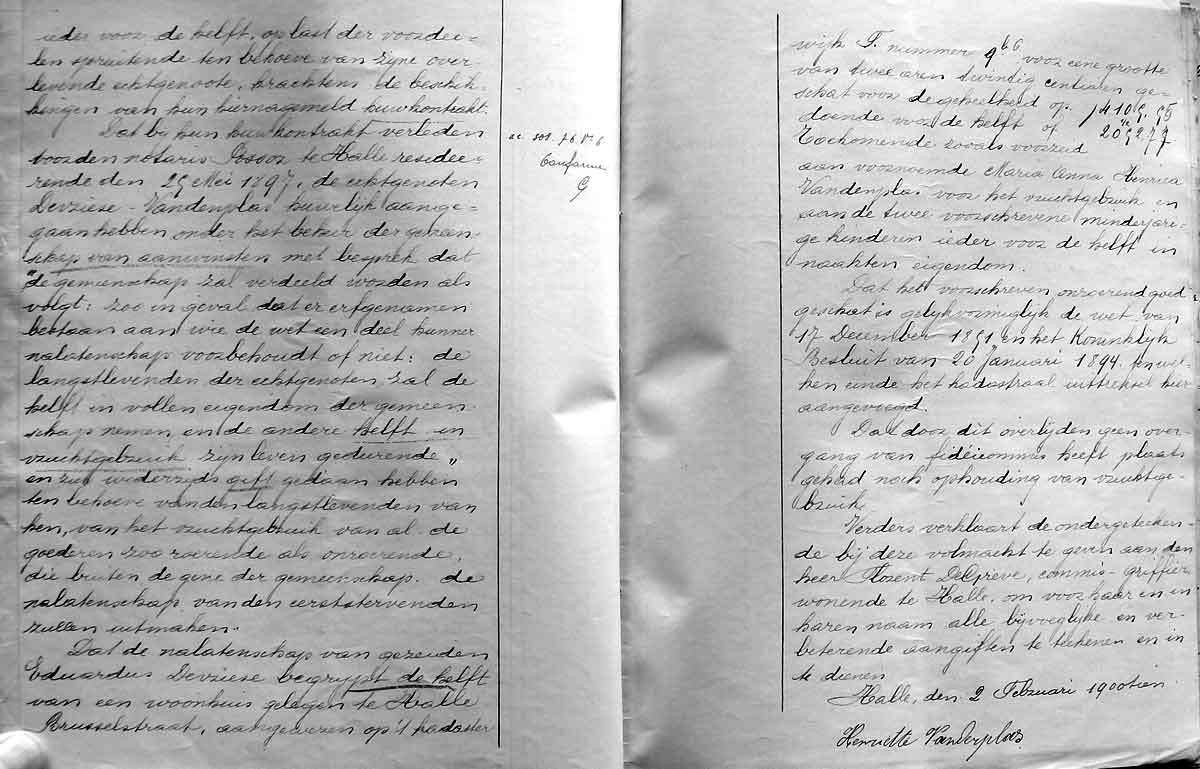 ieder voor de helft, op last der voordee-
len spruitende ten behoeve van zijne over-
levende echtgenoote, krachtens de beschik-
kingen van hun hiernagemeld huwkontrakt.
Dat bij hun huwkontrakt verleden
voor den notaris te Halle residee-
rende den 25 Mei 1897, de echtgenoten
Devriese-Vandenplas huwelijk aange-
gaan hebben onder het beheer der gemeen-
schap van aanwinsten met besprek dat
"de gemeenschap zal verdeeld worden als
volgt: zoo in geval dat er erfgenamen
bestaan aan wie de wet een deel hunner
nalatenschap voorbehoudt of niet: de
langstlevenden der echtgenoten zal de
helft in vollen eigendom der gemeen-
schap nemen en de andere helft in
vruchtgebruik zijn leven gedurende"
en zich wederzijds gift gedaan hebben
ten behoeve van den langstlevenden van
hen, van het vruchtgebruik van al de
goederen zoo roerende als onroerende,
die buiten de gene der gemeenschap de
nalatenschap van den eerststervenden
zullen uitmaken.
Dat de nalatenschap van gezeiden
Eduardus Devriese begrijpt de helft
van een woonhuis gelegen te Halle
Brusselstraat, aangewezen op 't kadaster
Conforme
wijk F. nummer 9 voor eene grootte
van twee aren twintig centiaren ge-
schat voor de geheelheid op
doende voor de helft of
Toekomende zooals voorzeid
aan voornoemde Maria Anna Henrica
Vandenplas voor het vruchtgebruik en
aan de twee voorschrevene minderjari-
ge kinderen ieder voor de helft in
naakten eigendom.
Dat het voorschreven onroerend goed
geschat is gelijkvormiglijk de wet van
17 December 1851 en het Koninklijk
Besluit van 20 Januari 1894. en wel-
ken einde het kadastraal uittreksel hier
aangevoegd.
Dat door dit overlijden geen over-
gang van fideicommis heeft plaats
gehad noch ophouding van vruchtge-
bruik.
Verders verklaart de ondergeteeken-
de bij deze volmacht te geven aan den
heer Florent DeGreve, commis-griffier
wonende te Halle, om voor haar en in
haren naam alle bijvoeglijke en ver-
beterende aangiften te teekenen en in
te dienen
Halle, den 2 Februari 1900tien
Henriette Vanderplas